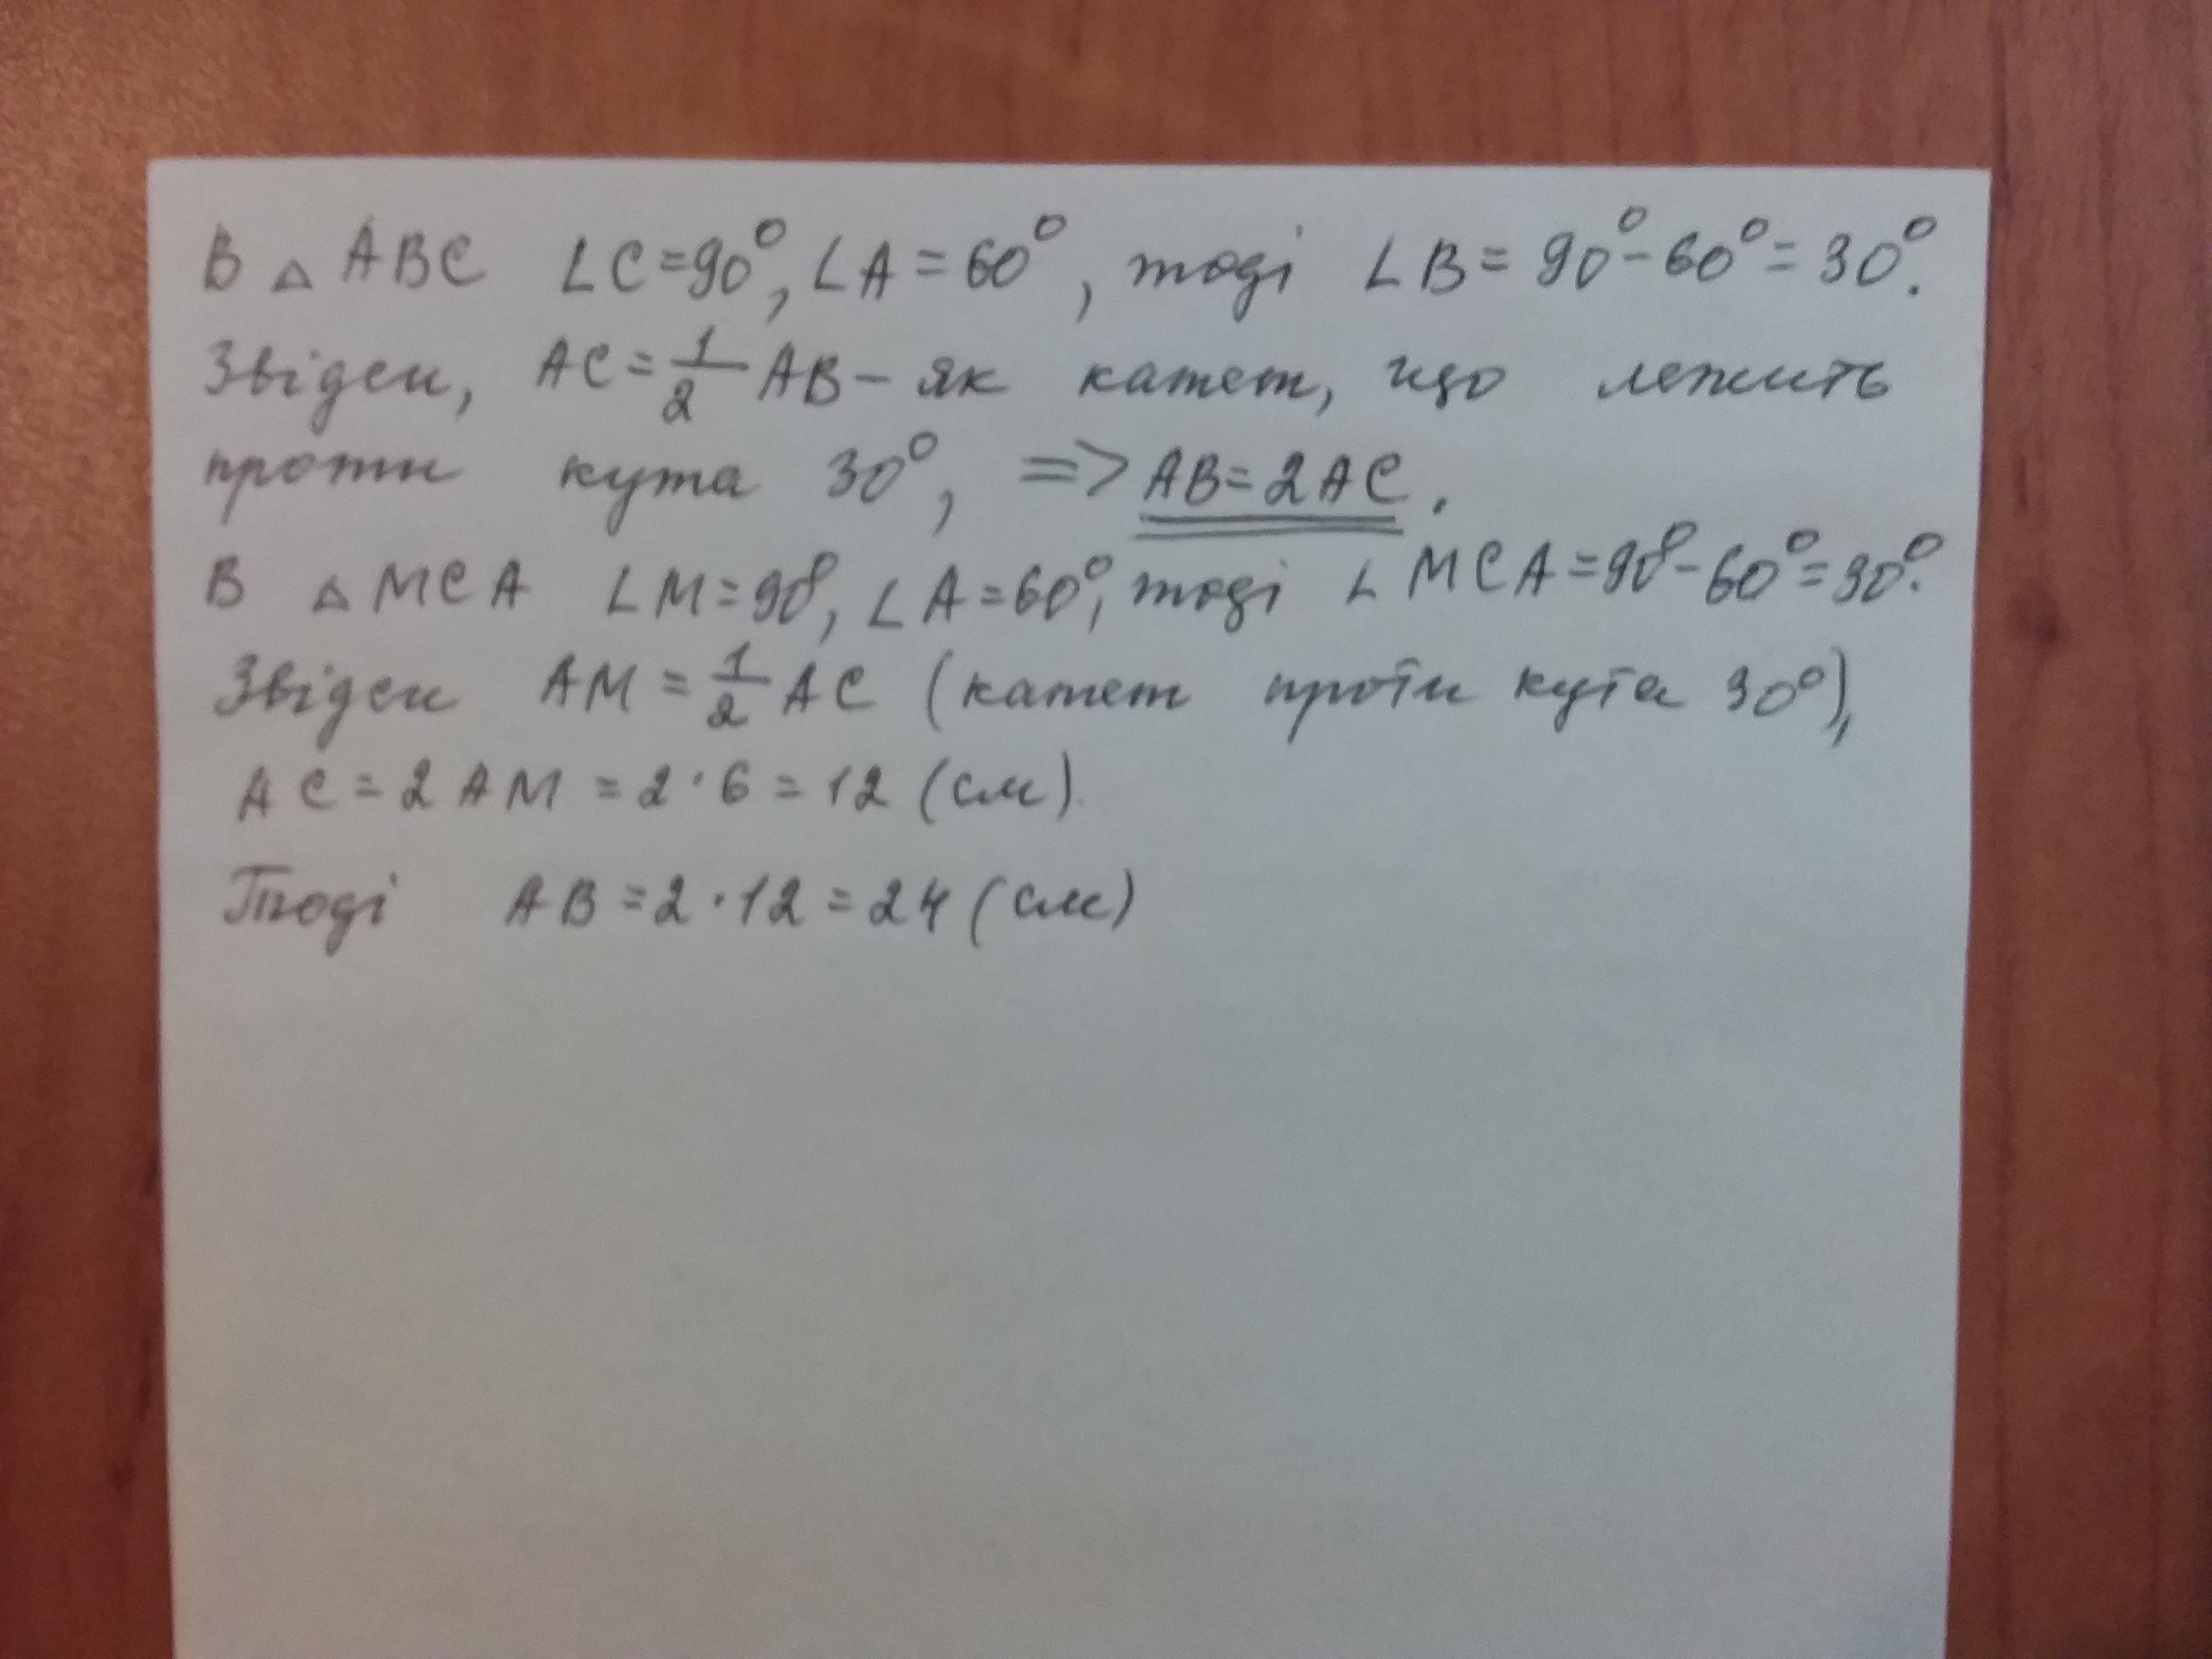 В △ ABC ∠C=90°, ∠A=60°, тоді ∠B=90°-60°=30°.
Звідси, AC=1/2 AB - як катет, що лежить
проти кута 30°, => AB=2AC.
В △ MCA ∠M=90°, ∠A=60°, тоді ∠MCA=90°-60°=30°.
Звідси AM=1/2 AC (катет проти кута 30°),
AC=2AM=2·6=12 (см).
Тоді AB=2·12=24 (см)